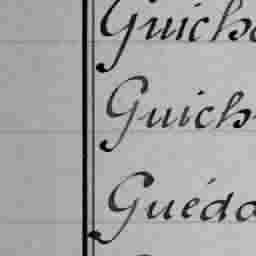 Guich
Guich
Guédo